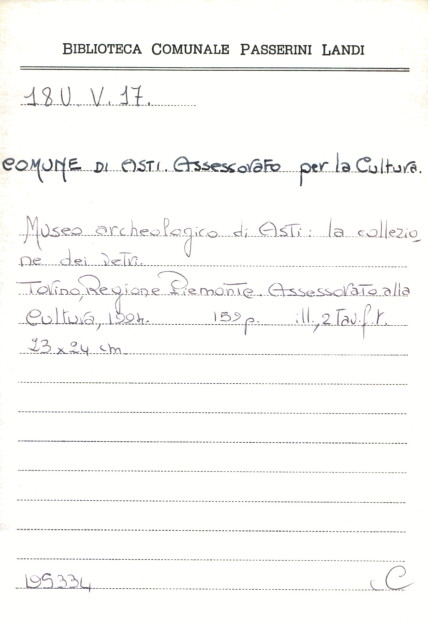 BIBLIOTECA COMUNALE PASSERINI LANDI
18U V. 17.
COMUNE DI ASTI. Assessorato per la Cultura.
Museo archeologico di Asti: la collezio_
ne dei vetri.
Torino, Regione Piemonte. Assessorato alla
Cultura, 1994. 159 p. ill., 2 Tav. f.t.
23 x 24 cm.
195334 C